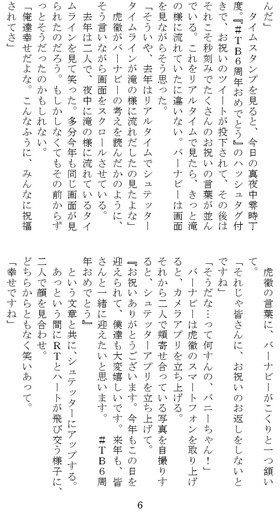 んだ」
　タイムスタンプを見ると、今日の真夜中零時丁
度。『＃ＴＢ６周年おめでとう』のハッシュタグ付
きで、お祝いのツイートが投下されて、その後は
それこそ秒刻みでたくさんのお祝いの言葉が並ん
でいる。これをリアルタイムで見たら、きっと滝
の様に流れていたに違いない。バーナビーは画面
を見ながらそう思った。
「そういや、去年はリアルタイムでシュテッター
タイムラインが滝の様に流れだしたの見たよな」
　虎徹がバーナビーの考えを読んだかのように、
そう言いながら画面をスクロールさせている。
　去年は二人で、夜中に滝の様に流れているタイ
ムラインを見て笑った。多分今年も同じ画面が見
られたのだろう。もしかしなくてもその前からず
っとそうだったのかもしれない。
「俺達幸せだよな。こんなふうに、みんなに祝福
されてさ」
　虎徹の言葉に、バーナビーがこくりと一つ頷い
て。
「それじゃ皆さんに、お祝いのお返しをしないと
ですね」
「そうだな…って何すんの、バニーちゃん！」
　バーナビーは虎徹のスマートフォンを取り上げ
ると、カメラアプリを立ち上げる。
それから二人で頬寄せ合っている写真を自撮りす
ると、シュテッターアプリを立ち上げて。
『お祝いありがとうございます。今年もこの日を
迎えられて、僕達も大変嬉しいです。来年も、皆
さんと一緒に迎えたいと思います。　＃ＴＢ６周
年おめでとう』
　という文章と共に、シュテッターにアップする。
　あっという間にＲＴとハートが飛び交う様子に、
二人で顔を見合わせ。
どちらからともなく笑いあって。
「幸せですね」
6